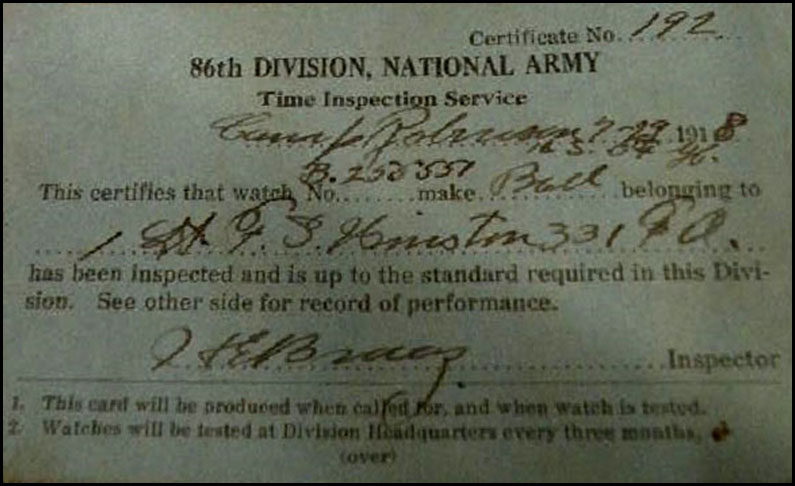 Certificate No. 192
86th DIVISION, NATIONAL ARMY
Time Inspection Service
Camp Robinson 7-29 1918
This certifies that watch No. B. make Ball belonging to
1 Lt. F. S. 331 F.A.
has been inspected and is up to the standard required in this Divi-
sion. See other side for record of performance.
Inspector
1. This card will be produced when called for, and when watch is tested.
2. Watches will be tested at Division Headquarters every three months,
(over)